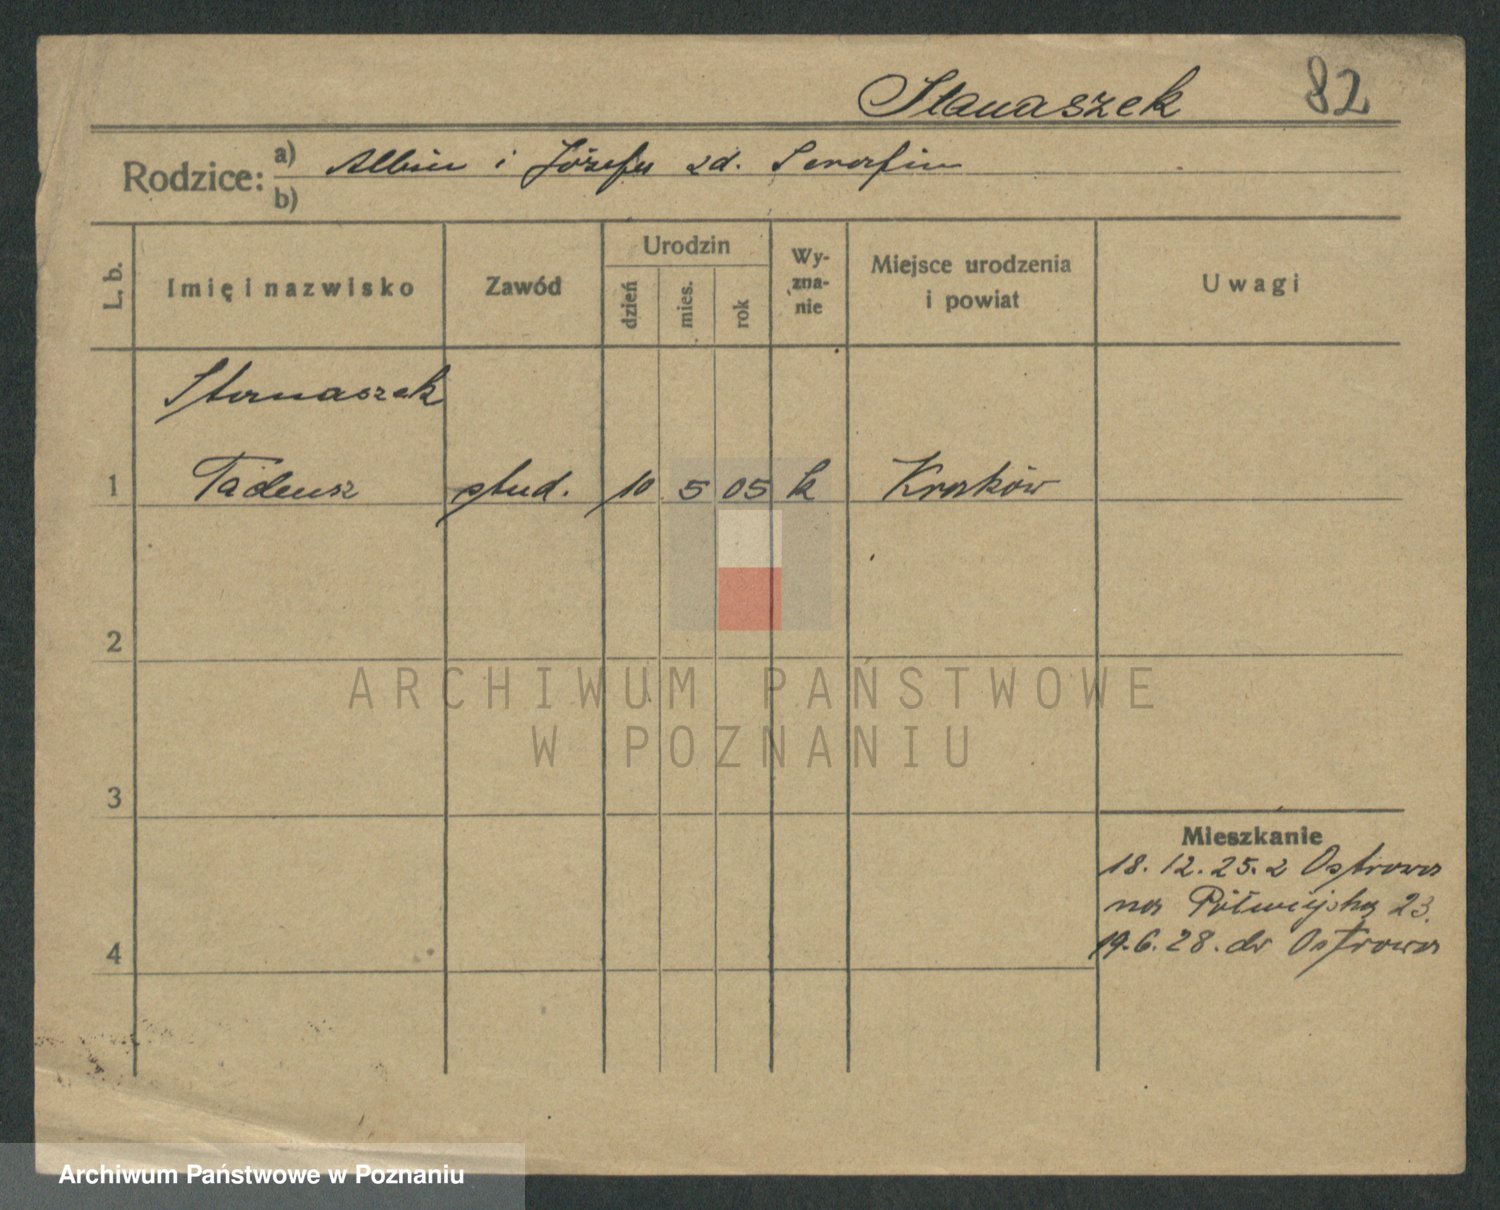 Stanaszek 82
Rodzice: a) Albin i Józefa zd. Serafin
b)
L. b. Imię i nazwisko Zawód Urodzin dzień mies. rok Wy-zna-nie Miejsce urodzenia i powiat Uwagi
Stanaszek
1 Tadeusz stud. 10 5 05 k Kraków
2
ARCHIWUM PAŃSTWOWE
W POZNANIU
3
Mieszkanie
18.12.25. z Ostrowa
na Półwiejską 23.
4
19.6.28. do Ostrowa
Archiwum Państwowe w Poznaniu